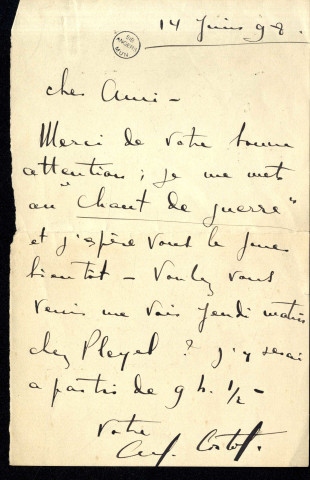 14 Juin 98.
BIB
ANGERS
MUN
cher Ami –
Merci de votre bonne
attention ; je me mets
au "Chant de guerre"
et j'espère vous le jouer
bientôt – Voulez vous
venir me voir Jeudi matin
chez Pleyel ? J'y serai
a partir de 9 h. 1/2 –
Votre
Alf. Cortot.